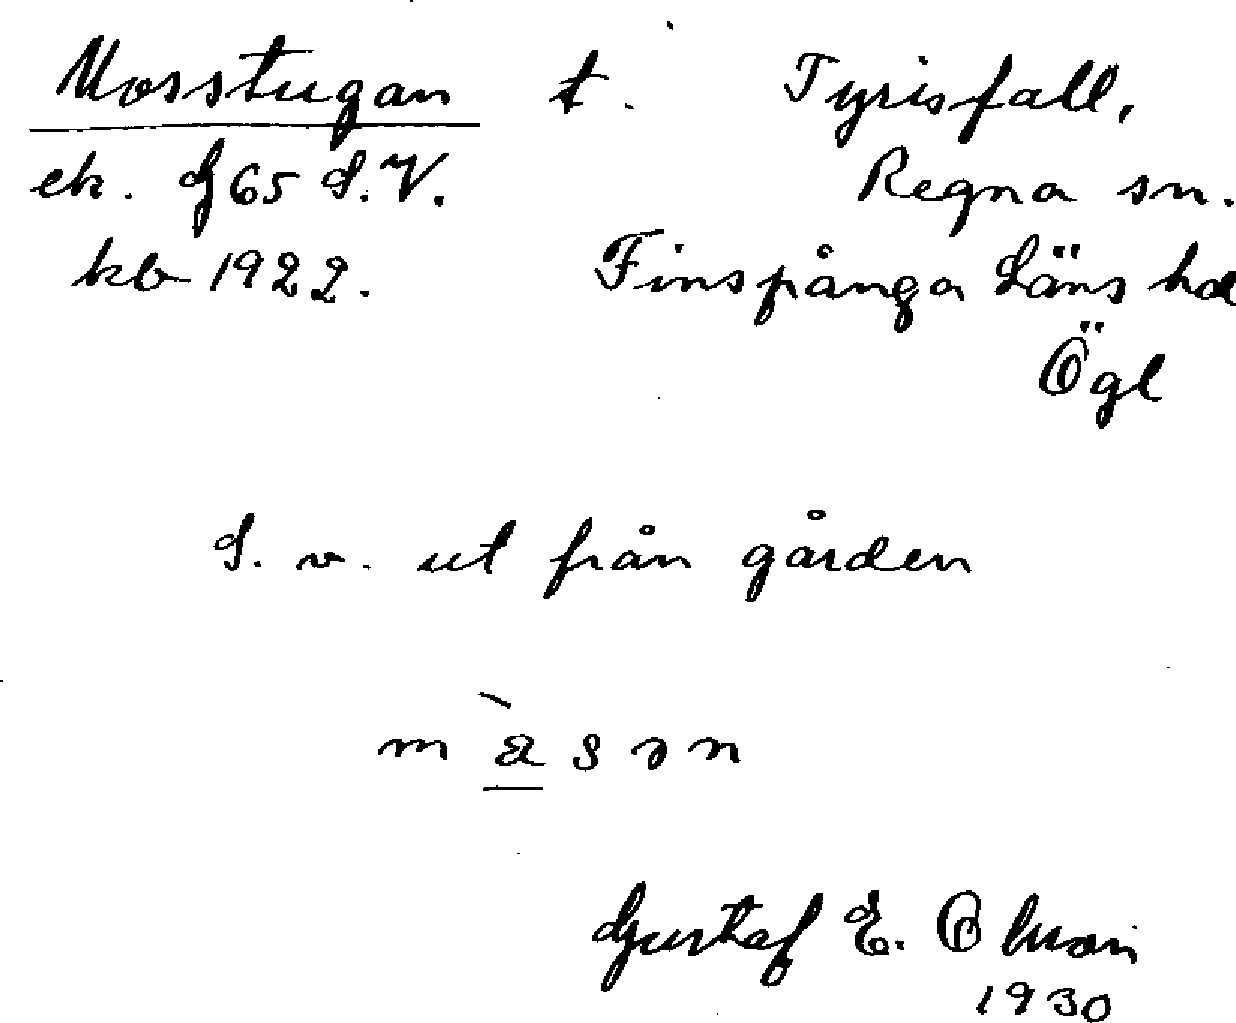 Mosstugan t. Tyrisfall,
ek. G 65 S.V. Regna sn.
kb 1922. Finspånga Läns hd
Ögl
S. v. ut från gården
m a s ə n
Gustaf E.
1930